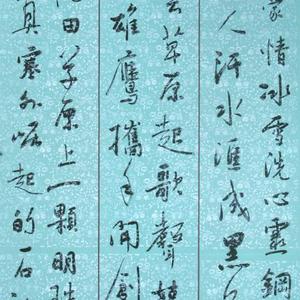 情冰雪洗心靈鋼
人汗水滙成黑
草原起歌聲
雄鷹攜手開創
田草原上一顆明珠
塞外崛起的一